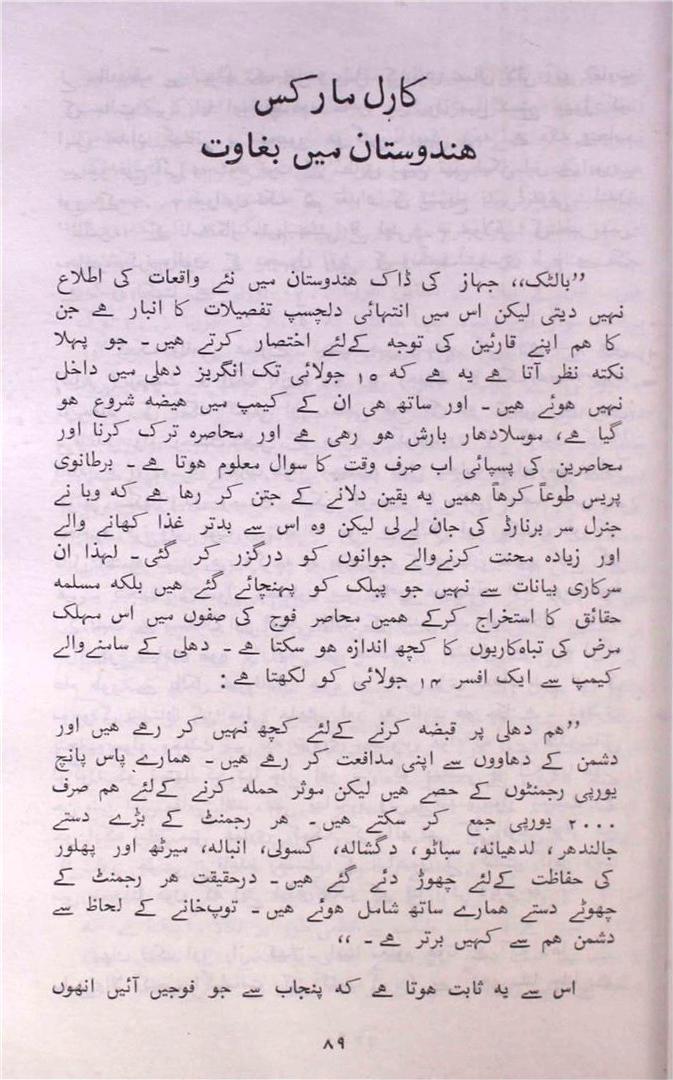 کارل مارکس
هندوستان میں بغاوت
”بالٹک،، جہاز کی ڈاک هندوستان میں نئے واقعات کی اطلاع
نہیں دیتی لیکن اس میں انتہائی دلچسپ تفصیلات کا انبار ہے جن
کا هم اپنے قارئین کی توجہ کےلئے اختصار کرتے هیں۔ جو پہلا
نکتہ نظر آتا ہے یہ ہے کہ ۱۵ جولائی تک انگریز دهلی میں داخل
نہیں هوئے هیں۔ اور ساتھ هی ان کے کیمپ میں هیضہ شروع هو
گیا ہے، موسلادهار بارش هو رهی ہے اور محاصرہ ترک کرنا اور
محاصرین کی پسپائی اب صرف وقت کا سوال معلوم هوتا ہے۔ برطانوی
پریس طوعاً کرهاً همیں یہ یقین دلانے کے جتن کر رها ہے کہ وبا نے
جنرل سر برنارڈ کی جان لےلی لیکن وہ اس سے بدتر غذا کھانے والے
اور زیادہ محنت کرنےوالے جوانوں کو درگزر کر گئی۔ لہذا ان
سرکاری بیانات سے نہیں جو پبلک کو پہنچائے گئے هیں بلکہ مسلمہ
حقائق کا استخراج کرکے همیں محاصر فوج کی صفوں میں اس مہلک
مرض کی تباہ کاریوں کا کچھ اندازہ هو سکتا ہے۔ دهلی کے سامنےوالے
کیمپ سے ایک افسر ۱۴ جولائی کو لکھتا ہے:
”هم دهلی پر قبضہ کرنے کےلئے کچھ نہیں کر رہے هیں اور
دشمن کے دهاووں سے اپنی مدافعت کر رہے هیں۔ همارے پاس پانچ
یورپی رجمنٹوں کے حصے هیں لیکن موثر حملہ کرنے کےلئے هم صرف
۲۰۰۰ یورپی جمع کر سکتے هیں۔ هر رجمنٹ کے بڑے دستے
جالندهر، لدهیانہ، سباٹو، دگشالہ، کسولی، انبالہ، میرٹھ اور پھلور
کی حفاظت کےلئے چھوڑ دئے گئے هیں۔ درحقیقت هر رجمنٹ کے
چھوٹے دستے همارے ساتھ شامل هوئے هیں۔ توپخانے کے لحاظ سے
دشمن هم سے کہیں برتر ہے۔،،
اس سے یہ ثابت هوتا ہے کہ پنجاب سے جو فوجیں آئیں انھوں
۸۹